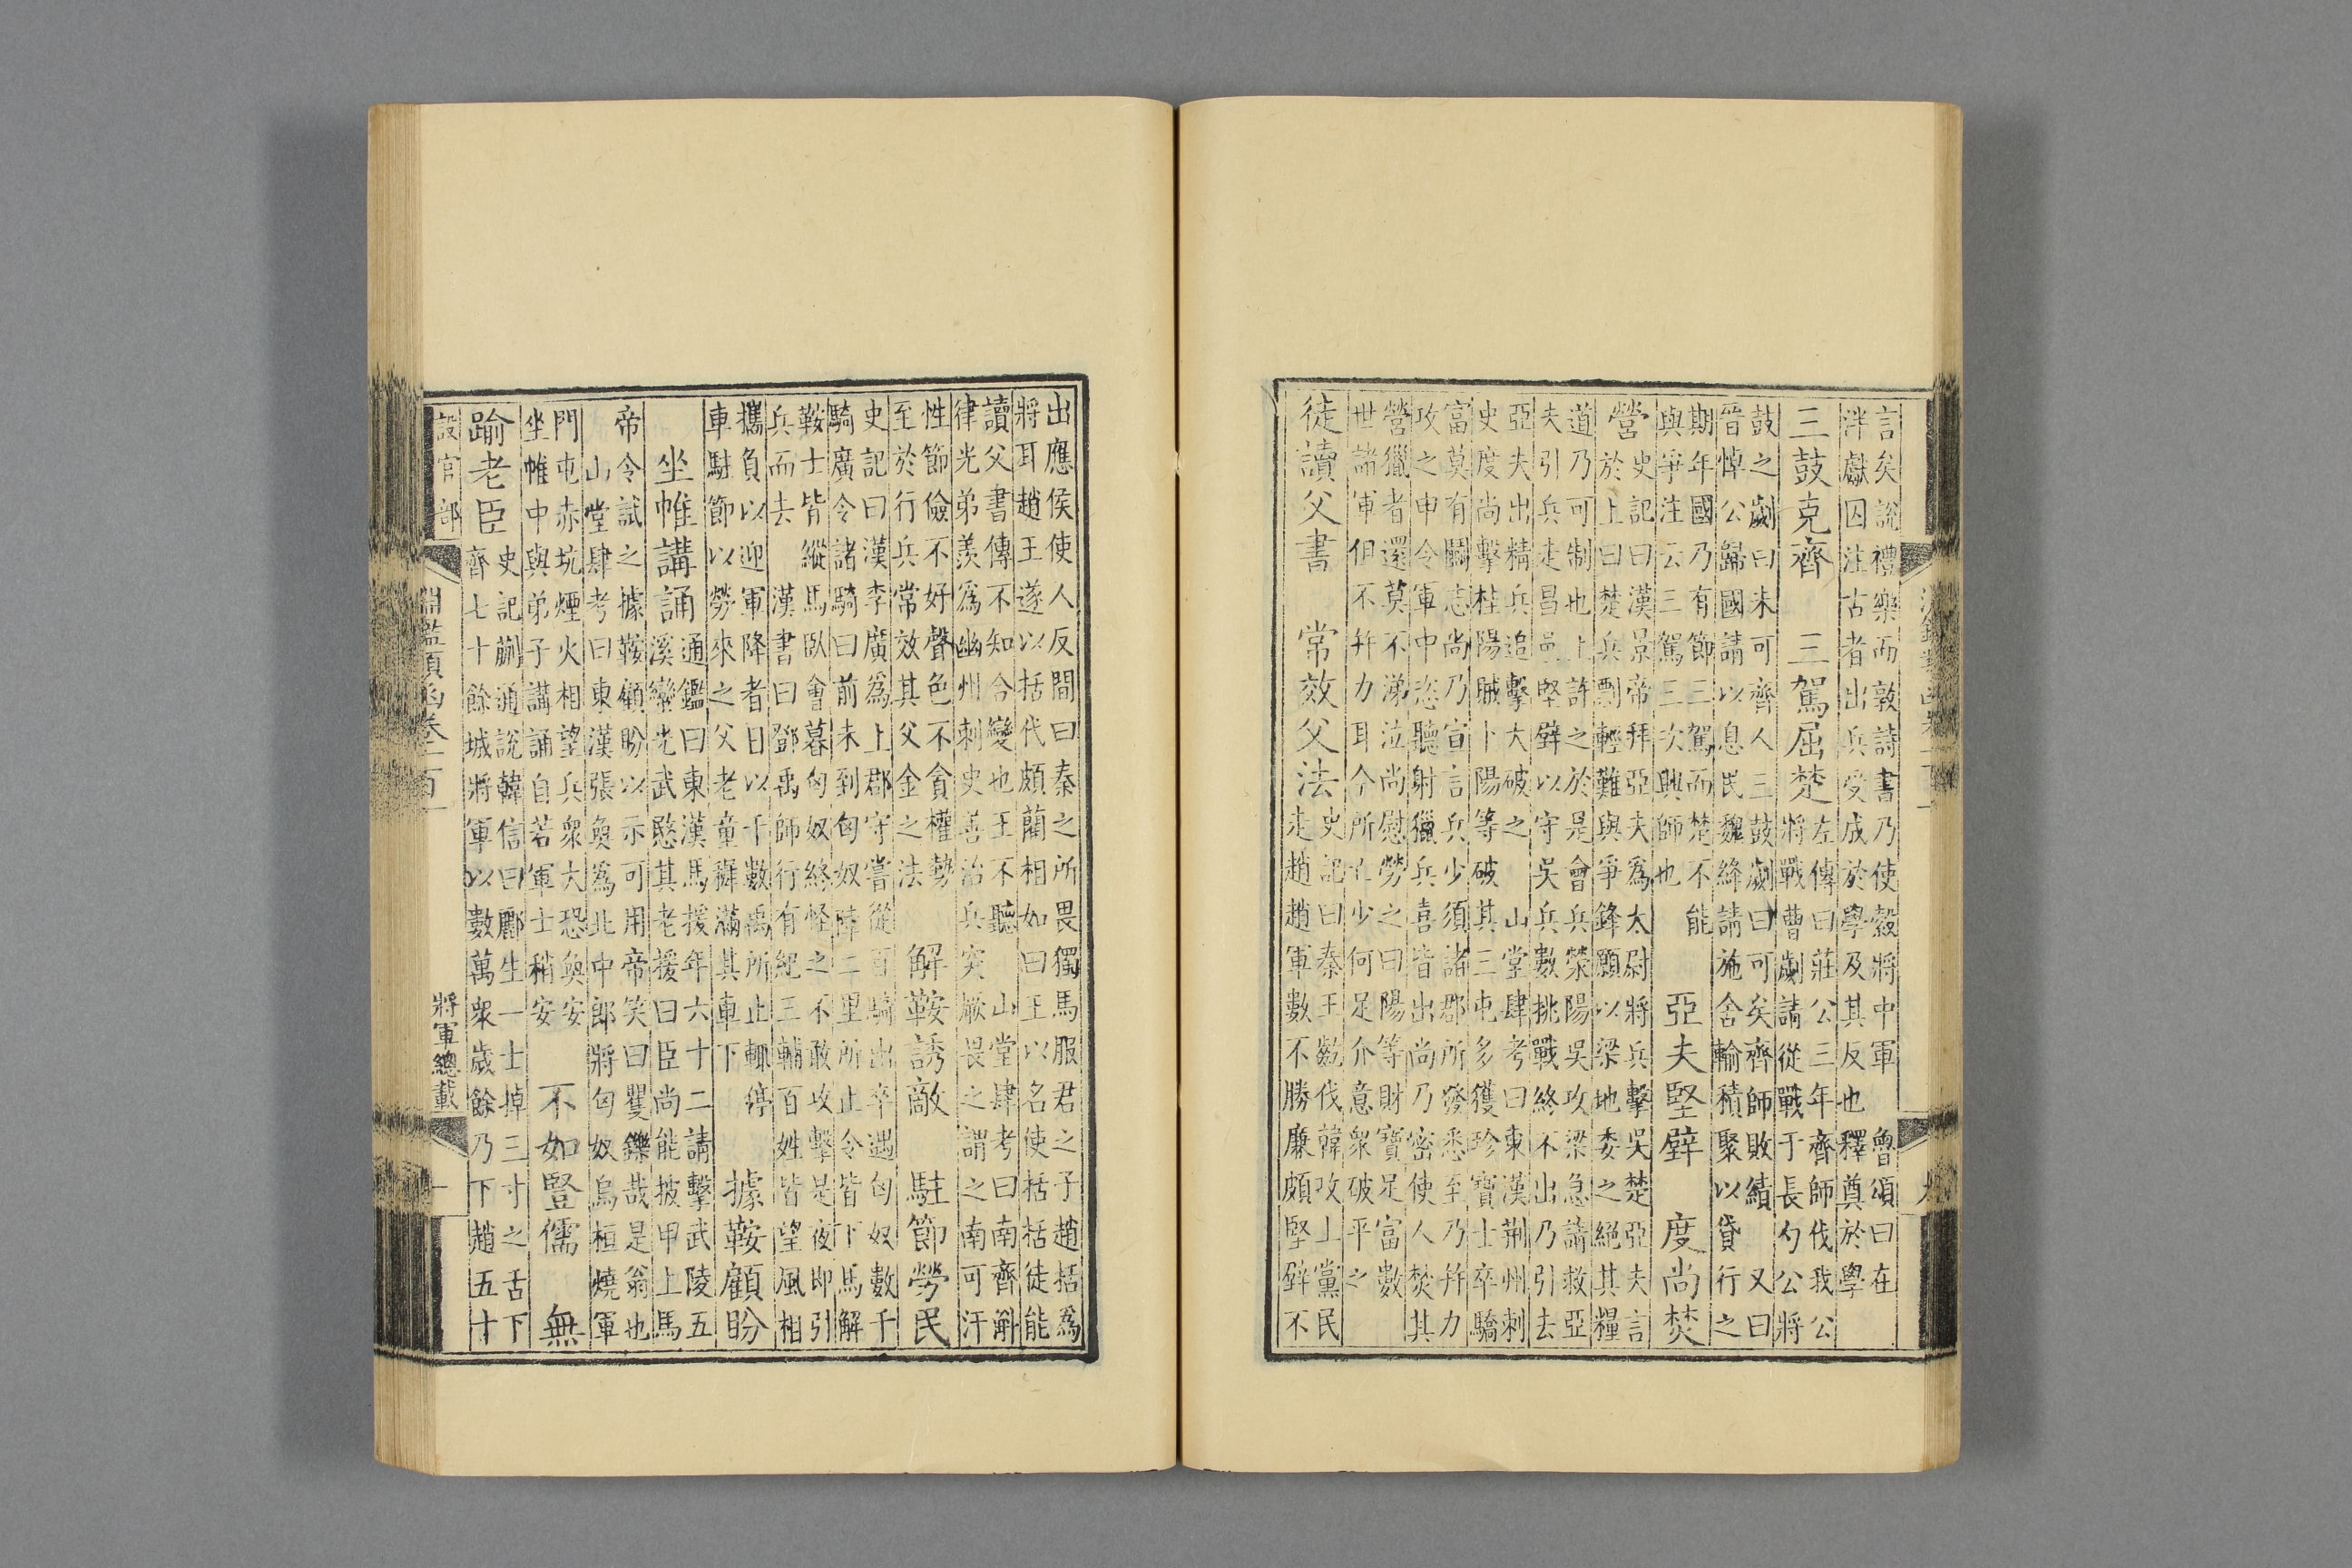 言矣說禮樂而敦詩書乃使縠將中軍 魯頌曰在
泮獻囚注古者出兵受成於學及其反也釋奠於學
三鼓克齊 三駕屈楚
左傳曰莊公三年齊師伐我公
將戰曹劌請從戰于長勺公將
鼓之劌曰未可齊人三鼓劌曰可矣齊師敗績 又曰
晉悼公歸國請以息民魏絳請施舍輸積聚以貸行之
期年國乃有節三駕而楚不能
與爭注云三駕三次興師也
亞夫堅壁 度尚焚
營
史記曰漢景帝拜亞夫爲太尉將兵擊吳楚亞夫言
於上曰楚兵剽輕難與爭鋒願以梁地委之絕其糧
道乃可制也上許之於是會兵滎陽吳攻梁急請救亞
夫引兵走昌邑堅壁以守吳兵數挑戰終不出乃引去
亞夫出精兵追擊大破之 山堂肆考曰東漢荆州刺
史度尚擊桂陽賊卜陽等破其三屯多獲珍寶士卒驕
富莫有鬭志尚乃宣言兵少須諸郡所發悉至乃并力
攻之申令軍中恣聽射獵兵喜皆出尚乃密使人焚其
營獵者還莫不涕泣尚慰勞之曰陽等財寶足富數
世諸軍但不并力耳今所亡少何足介意衆破平之
徒讀父書 常效父法
史記曰秦王齕伐韓攻上黨民
走趙趙軍數不勝廉頗堅壁不
出應侯使人反間曰秦之所畏獨馬服君之子趙括爲
將耳趙王遂以括代頗藺相如曰王以名使括括徒能
讀父書傳不知合變也王不聽 山堂肆考曰南齊斛
律光弟羨爲幽州刺史善治兵突厥畏之謂之南可汗
性節儉不好聲色不貪權勢
至於行兵常效其父金之法
解鞍誘敵 駐節勞民
史記曰漢李廣爲上郡守嘗從百騎出卒遇匈奴數千
騎廣令諸騎曰前未到匈奴陣二里所止令皆下馬解
鞍士皆縱馬臥會暮匈奴終怪之不敢攻擊是夜即引
兵而去 漢書曰鄧禹師行有紀三輔百姓皆望風相
攜負以迎軍降者日以千數禹所止輒停
車駐節以勞來之父老童穉滿其車下
據鞍顧盼
坐帷講誦
通鑑曰東漢馬援年六十二請擊武陵五
溪蠻光武愍其老援曰臣尚能披甲上馬
帝令試之據鞍顧盼以示可用帝笑曰矍鑠哉是翁也
山堂肆考曰東漢張奐爲北中郎將匈奴烏桓燒軍
門屯赤坑煙火相望兵衆大恐奐安
坐帷中與弟子講誦自若軍士稍安
不如豎儒 無
踰老臣
史記蒯通說韓信曰酈生一士掉三寸之舌下
齊七十餘城將軍以數萬衆歲餘乃下趙五十
設官部
淵鑑類函卷一百一
將軍總載